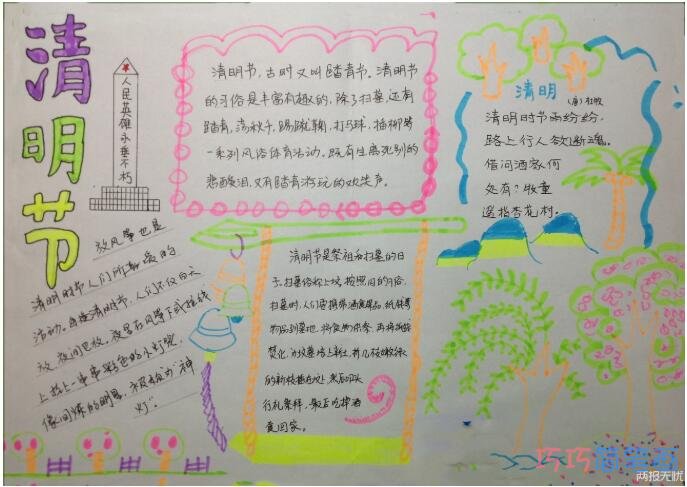 清明节
人民英雄永垂不朽
清明节，古时又叫踏青节。清明节
的习俗是丰富有趣的，除了扫墓，还有
踏青，荡秋千，踢蹴鞠，打马球，插柳等
一系列风俗体育活动。既有生离死别的
悲酸泪，又有踏青游玩的欢笑声。
清明
(唐) 杜牧
清明时节雨纷纷，
路上行人欲断魂。
借问酒家何
处有？牧童
遥指杏花村。
放风筝也是
清明时节人们所喜爱的
活动。每逢清明节，人们不仅白天
放，夜间也放。夜里在风筝下或拉线
上挂上一串串彩色的小灯笼，
像闪烁的明星，被称为"神
灯"。
清明节是祭祖和扫墓的日
子。扫墓俗称上坟，按照旧的习俗，
扫墓时，人们要携带酒食果品，纸钱等
物品到墓地，将食物供祭
焚化，为坟墓培上新土，折几枝嫩绿
的新枝插在坟上，然后叩头
行礼祭拜，最后吃掉酒
食回家。
巧巧
两报无忧